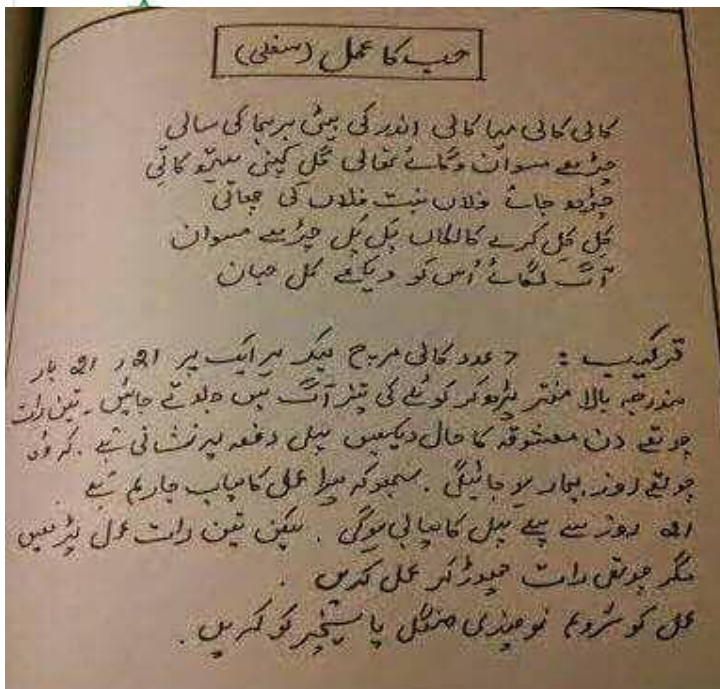 حب کا عمل (سفلی)
کالی کالی مہا کالی اندر کی بیٹی برہما کی سالی
چڑھے مسوان وگائے تھالی گل
چڑھ جائے فلاں بنت فلاں کی چھاتی
کل کل کرے کالکاں پل پل چڑھے مسوان
آگ لگائے اُس کو دیکھے کل جہان
ترکیب : 7 عدد کالی مرچ لیکر ہر ایک پر 21 ، 21 بار
مندرجہ بالا منتر پڑھ کر کوئلے کی تیز آگ میں جلاتے جائیں ۔ تین رات
چوتھے دن معشوقہ کا حال دیکھیں پہلی دفعہ یہ نشانی ہے ۔ کہ وہ
چوتھے روز بیمار ہو جائیگی ۔ سمجھو کہ میرا عمل کامیاب جا رہا ہے ۔
21 روز سے پہلے پہلے کامیابی ہوگی ۔ لیکن تین رات عمل پڑھیں
مگر چوتھی رات چھوڑ کر عمل کریں ۔
عمل کو شروع نوچندی منگل یا سنیچر کو کریں ۔